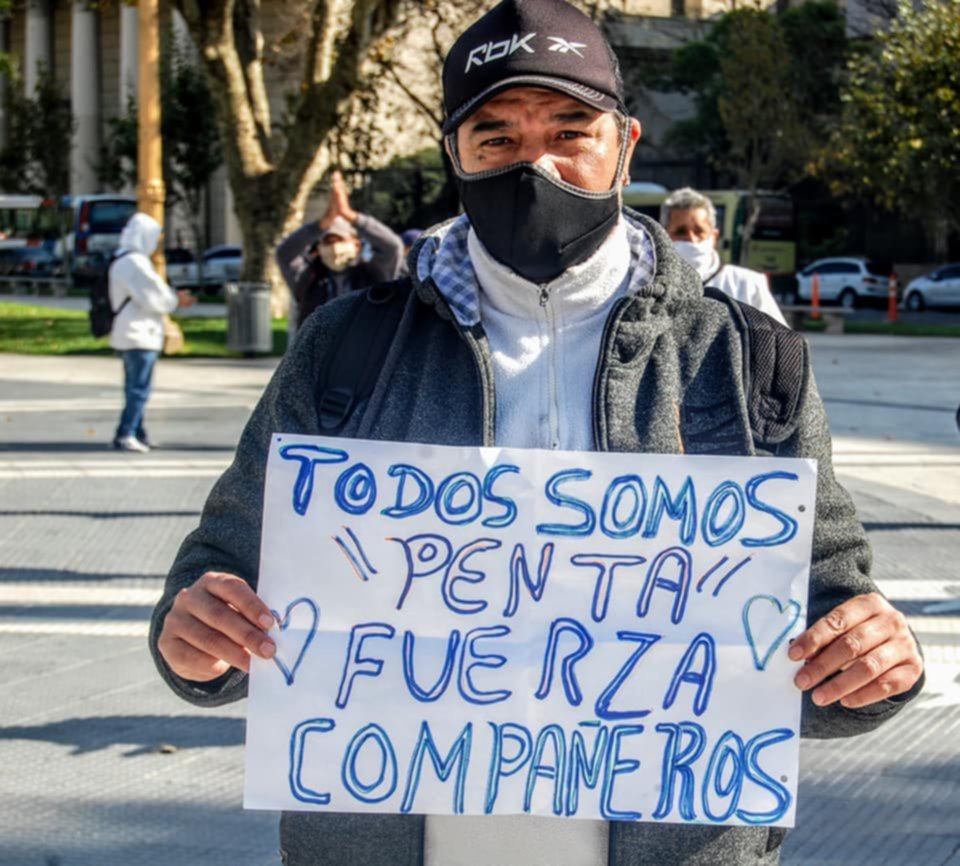 RBK
TODOS SOMOS
"PENTA"
FUERZA
COMPAÑEROS